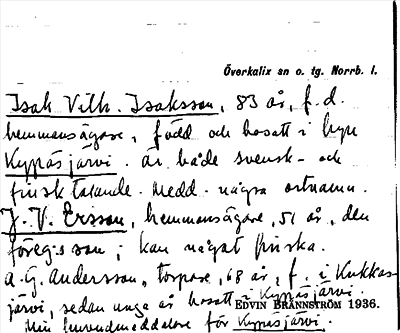 Överkalix sn o. tg. Norrb. l.
Isak Vilh. Isaksson, 83 år, f.d.
hemmansägare, född och bosatt i byn
Kypäsjärvi. Är både svensk- och
finsktalande. Medd. några ortnamn.
J. V. Ersson, hemmansägare, 51 år, den
föreg:s son; kan något finska.
A. G. Andersson, torpare, 68 år, f. i Kukkas-
järvi, sedan unga år bosatt i Kypäsjärvi.
EDVIN BRÄNNSTRÖM 1936.
Min huvudmeddelare för Kypäsjärvi.